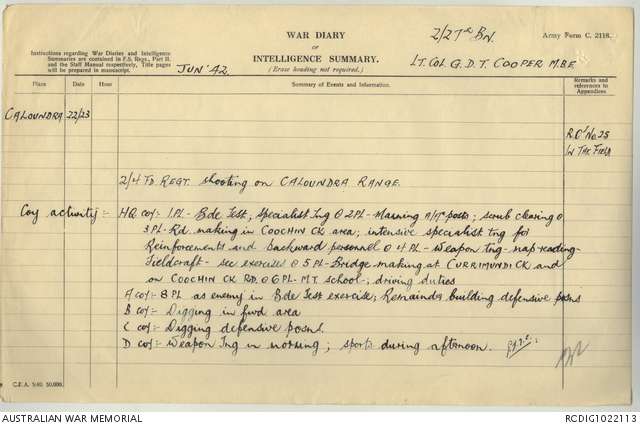 WAR DIARY
OF
INTELLIGENCE SUMMARY.
(Erase heading not required.)
2/27th BN.
Army Form C. 2118.
Instructions regarding War Diaries and Intelligence
Summaries are contained in F.S. Regs., Part II.
and the Staff Manual respectively. Title pages
will be prepared in manuscript.
JUN' 42.
LT. COL G. D. T. COOPER M.B.E
Place
Date
Hour
Summary of Events and Information.
Remarks and
references to
Appendices
CALOUNDRA 22/23
R.O's No. 25
in the FIELD
2/4 FD REGT. shooting on CALOUNDRA RANGE.
Coy activity:- HQ coy: 1 PL - Bde Test; Specialist Tng @ 2 PL - Manning A/Tk posts; scrub clearing @
3 PL - Rd. making in COOCHIN CK area; intensive specialist tng for
Reinforcements and backward personnel @ 4 PL - Weapon tng - map reading -
Fieldcraft - sec exercise @ 5 PL - Bridge making at CURRIMUNDI CK and
on COOCHIN CK RD. @ 6 PL - M.T. school; driving duties
A coy:- 8 PL as enemy in Bde Test exercise; Remainder building defensive posns
B coy:- Digging in fwd area
C coy:- Digging defensive posns.
D coy:- Weapon Tng in morning; sports during afternoon.
C.F.A. 9/40. 50,000.
AUSTRALIAN WAR MEMORIAL
RCDIG1022113